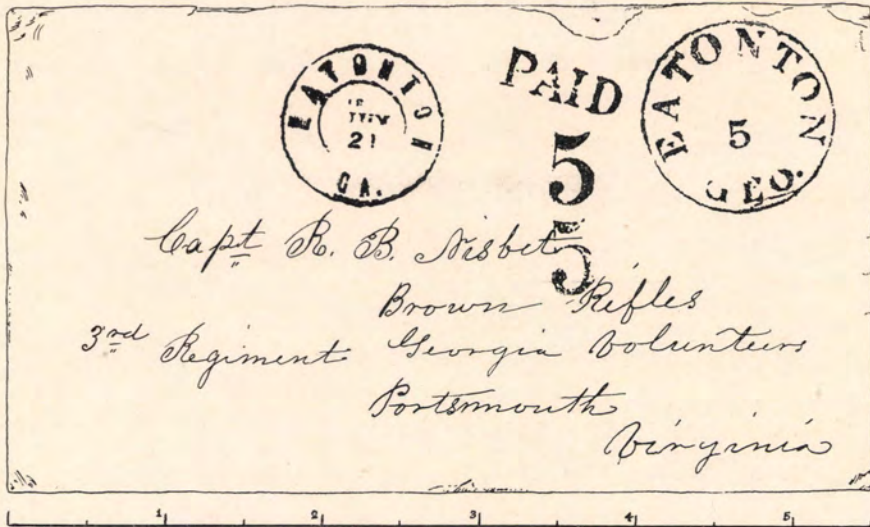 EATONTON
21
GA.
PAID
5
5
EATONTON
5
GEO.
Capt R. B. Nisbet
Brown Rifles
3rd Regiment Georgia Volunteers
Portsmouth
Virginia
1 2 3 4 5